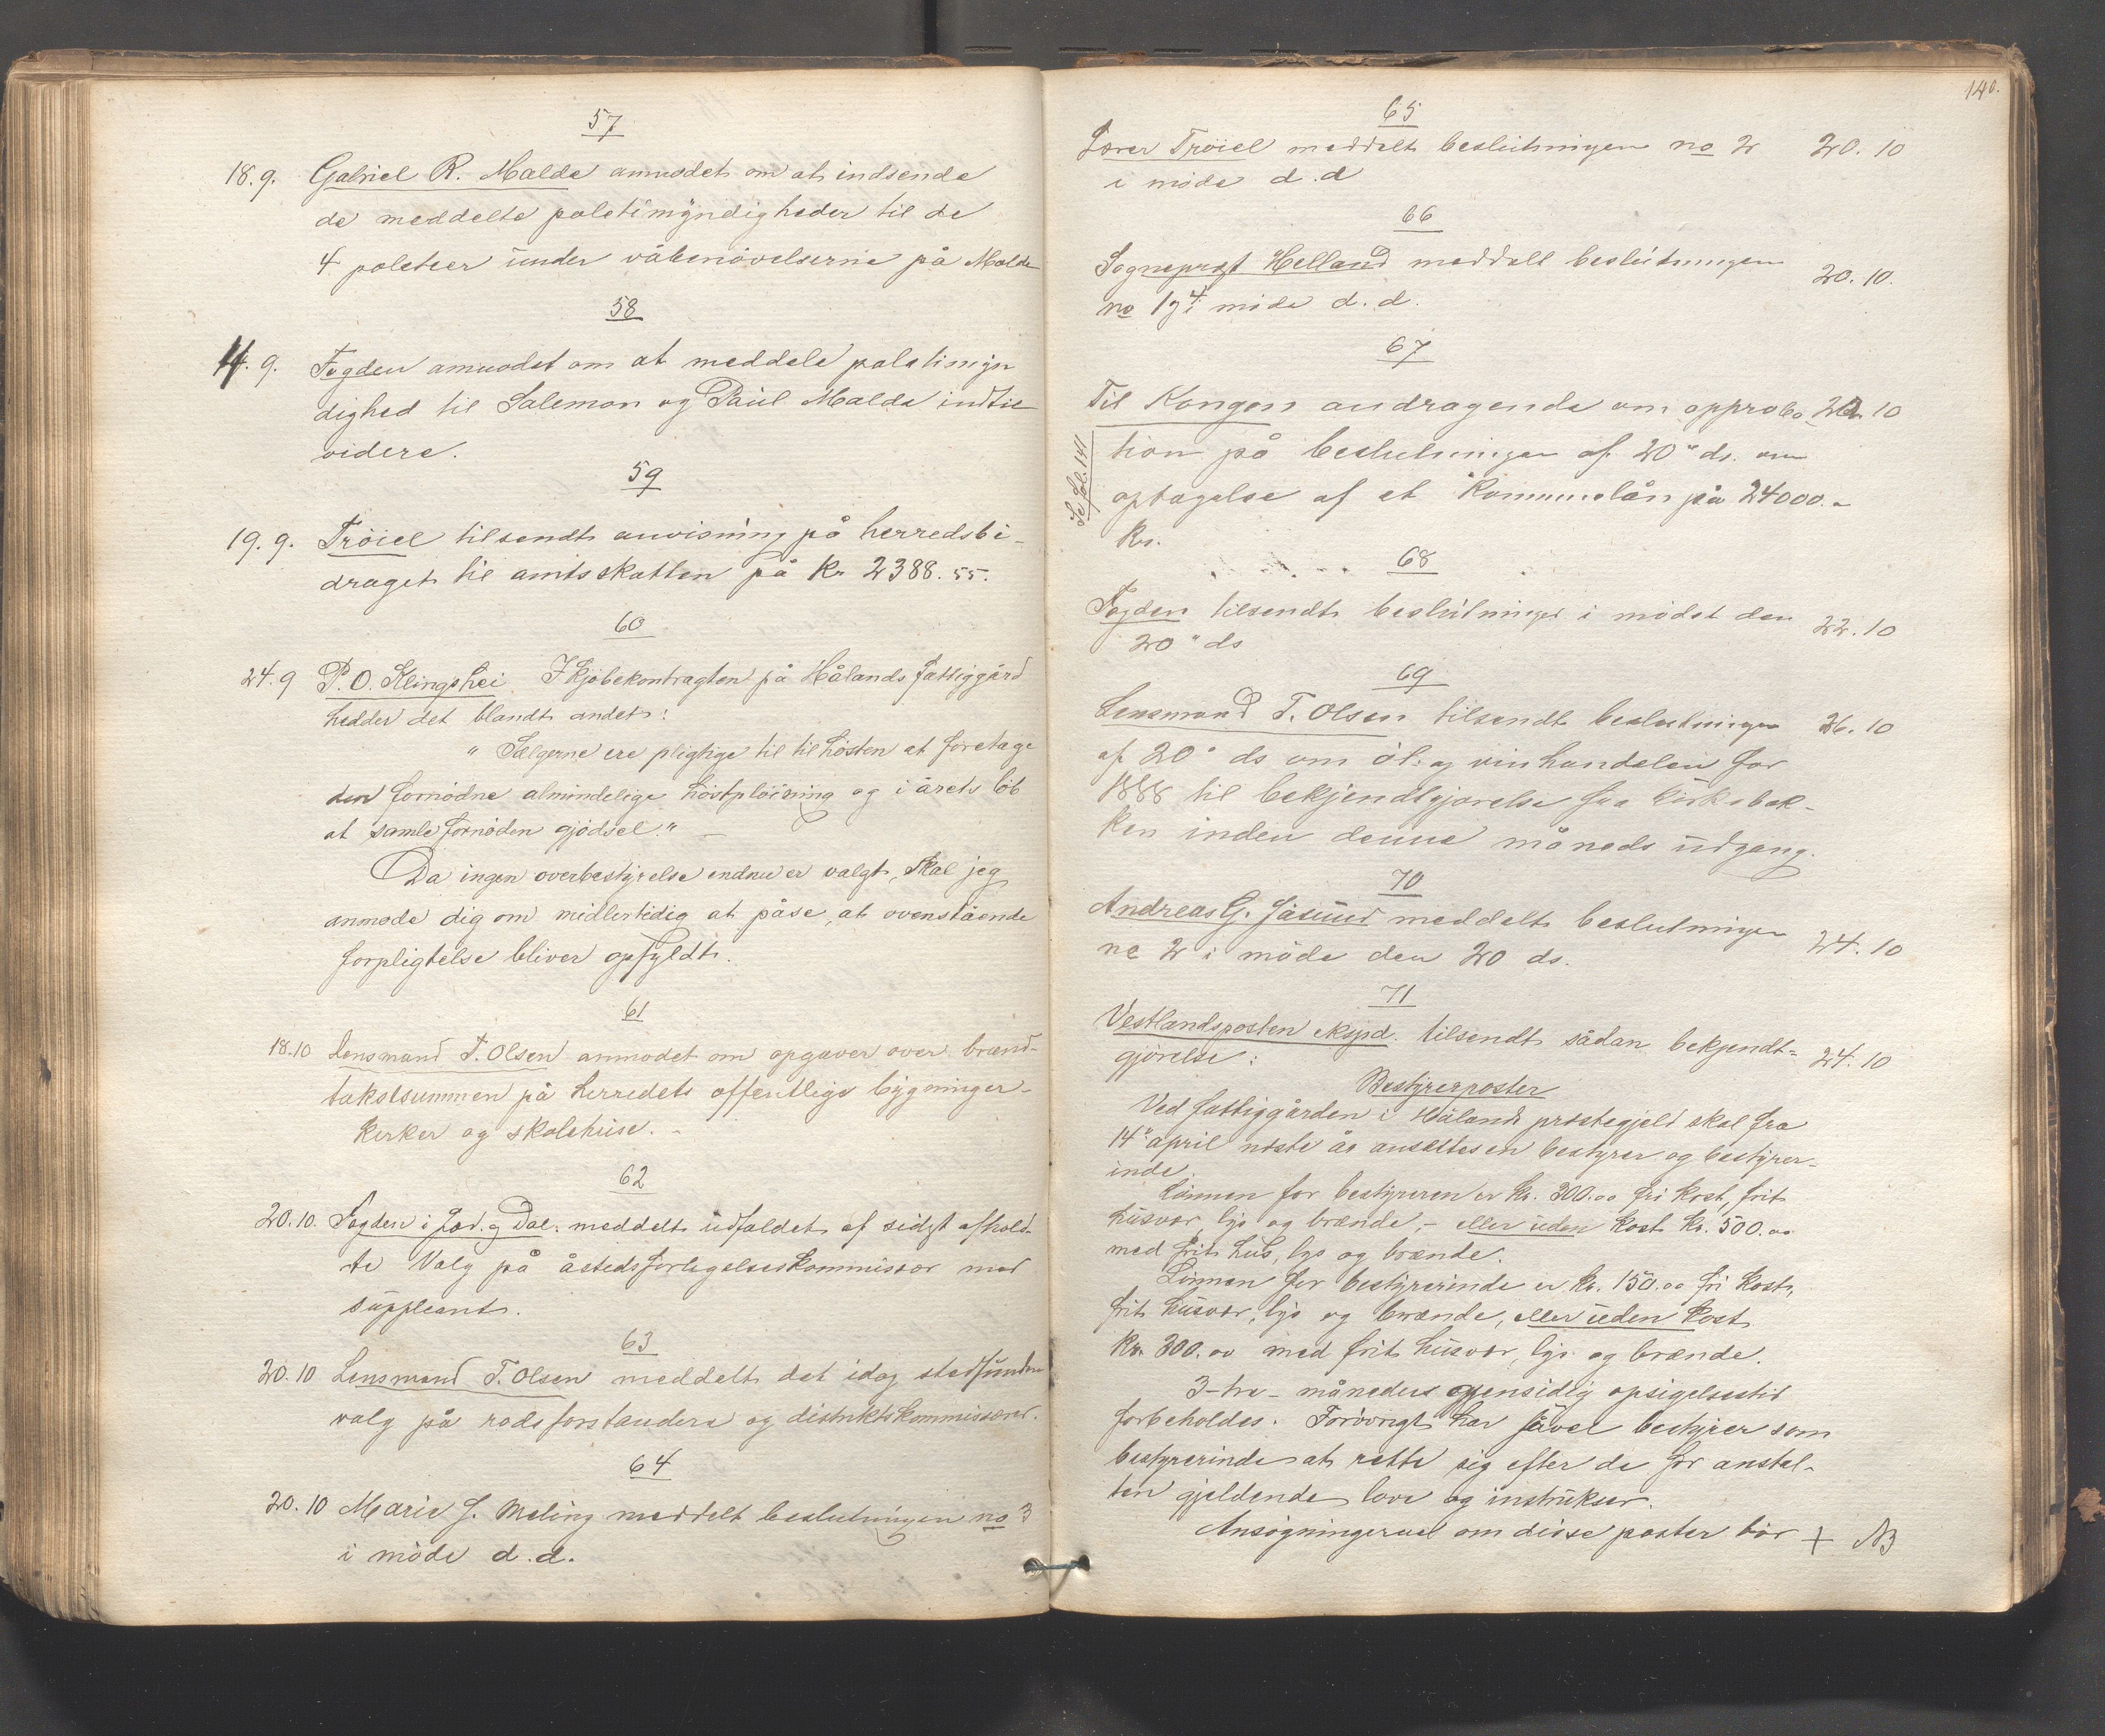 57
18.9. Gabriel R. Malde anmodet om at indsende
de meddelte politimyndigheder til de
4 politier under våbenøvelserne på Malde
58
11.9. Fogden anmodet om at meddele politimyn
dighed til Salemon og Paul Malde indtil
videre.
59
19.9. Tröiel tilsendt anvisning på herredsbi-
draget til amtsskatten på Kr 2388.55.
60
24.9 P. O. Klingshei I Kjøbekontragten på Hålands Fattiggård
hedder det blandt andet:
" Sælgerne ere pligtige til til hösten at foretage
den fornødne almindelige höstplöining og i årets löb
at samle fornöden gjödsel." -
Da ingen overbestyrelse endnu er valgt, skal jeg
anmode dig om midlertidig at påse, at ovenstående
forpligtelse bliver opfyldt.
61
18.10 Lensmand T. Olsen anmodet om opgaver over brand-
takstsummen på herredets offentlige bygninger-
kirker og skolehuse. -
62
20.10. Fogden i Jæd. og Dal. meddelt udfaldet af sidst afhold-
te Valg på åstedsforligelseskommissær med
suppleant.
63
20.10 Lensmand T. Olsen meddelt det idag stedfundne
valg på rodeforstandere og distriktskommissærer.
64
20.10 Marie J. Meling meddelt beslutningen no 3
i möde d.d.
140.
65
Lærer Tröiel meddelt beslutningen no 2 20.10
i möde d.d
66
Sogneprest Helland meddelt beslutningen 20.10.
no 1 og 4 i möde d.d.
67
Til Kongen andragende om approba- 22.10
tion på beslutningen af 20" ds. om
optagelse af et Kommunelån på 24000.-
Kr.
Se fol. 141
68
Fogden tilsendt beslutninger i mödet den 22.10
20" ds
69
Lensmand T. Olsen tilsendt beslutningen 26.10
af 20" ds om öl- og vinhandelen for
1888 til bekjendtgjørelse fra kirkebak-
ken inden denne måneds udgang.
70
Andreas G. Jåsund meddelt beslutningen 24.10
no 2 i möde den 20 ds.
71
Vestlandsposten eksped. tilsendt sådan bekjendt= 24.10
gjörelse:
Bestyrerposter
Ved fattiggården i Hålands prestegjeld skal fra
14" april næste år ansættes en bestyrer og bestyrer-
inde.
Lönnen for bestyreren er kr. 300.00 fri kost, frit
husvær, lys og brænde, - eller uden kost kr. 500.00
med frit hus, lys og brænde.
Lönnen for bestyrerinde er kr. 150.00 fri kost,
frit husvær, lys og brænde, eller uden kost
Kr. 300.00 med frit husvær, lys og brænde.
3-tre- måneders gjensidig opsigelsestid
forbeholdes. Forövrigt har såvel bestyrer som
bestyrerinde at rette sig efter de for anstal-
ten gjeldende love og instrukser.
Ansøgninger om disse poster bör + NB